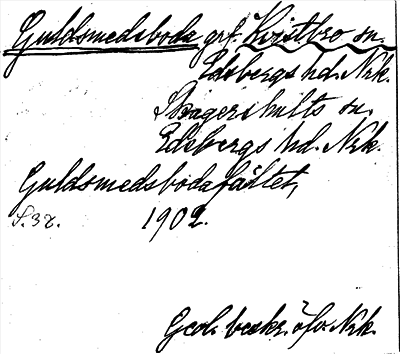 Guldsmedsboda grf. Kvistbro sn.
Edsbergs hd. Nrk.
Skagershults sn.
Edsbergs hd. Nrk.
Guldsmedsbodafältet,
S. 37. 1902.
Geol. beskr. öfv. Nrk.